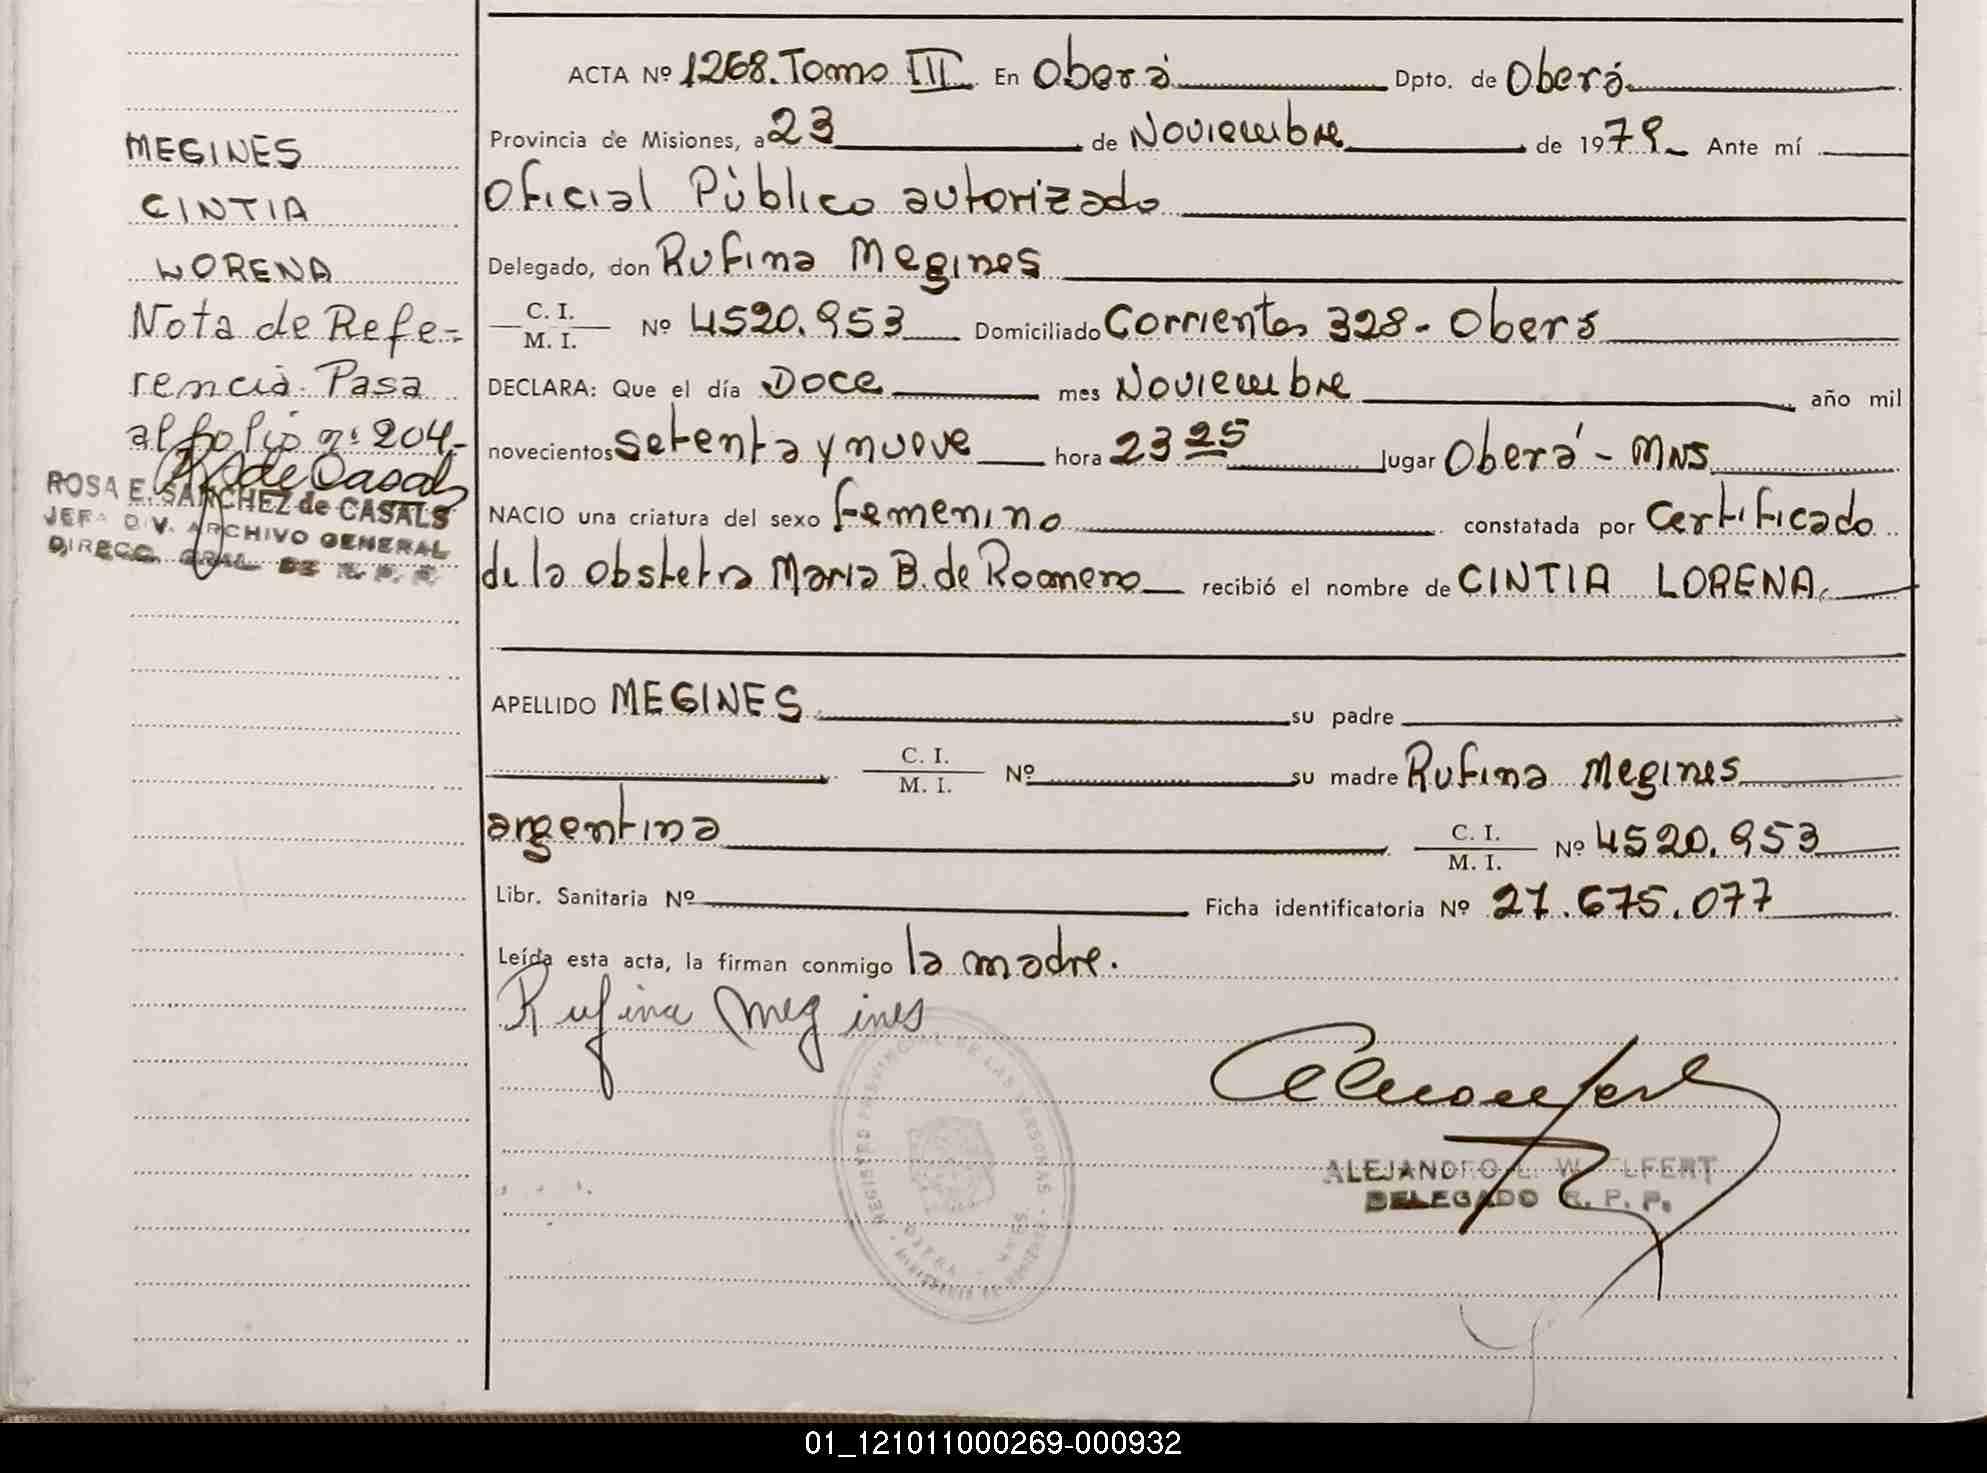 MEGINES
CINTIA
LORENA
Nota de Refe=
rencia. Pasa
al folio nº 204-
ROSA E. SANCHEZ de CASALS
JEFA DIV. ARCHIVO GENERAL
DIRECC. GRAL. DE R. P. P.
ACTA Nº 1268. Tomo III En Oberá Dpto. de Oberá
Provincia de Misiones, a 23 de Noviembre de 1979 Ante mí
Oficial Público autorizado
Delegado, don Rufina Megines
C. I.
M. I. Nº 4520.953 Domiciliado Corrientes 328 - Oberá
DECLARA: Que el día Doce mes Noviembre año mil
novecientos setenta y nueve hora 23 25 lugar Oberá - Mns
NACIO una criatura del sexo femenino constatada por Certificado
de la Obstetra Maria B. de Romero recibió el nombre de CINTIA LORENA
APELLIDO MEGINES su padre
C. I.
M. I. Nº su madre Rufina Megines
argentina C. I.
M. I. Nº 4520.953
Libr. Sanitaria Nº Ficha identificatoria Nº 27.675.077
Leída esta acta, la firman conmigo la madre.
Rufina Megines
REGISTRO PROVINCIAL DE LAS PERSONAS
DELEGADO R. P. P.
01_121011000269-000932